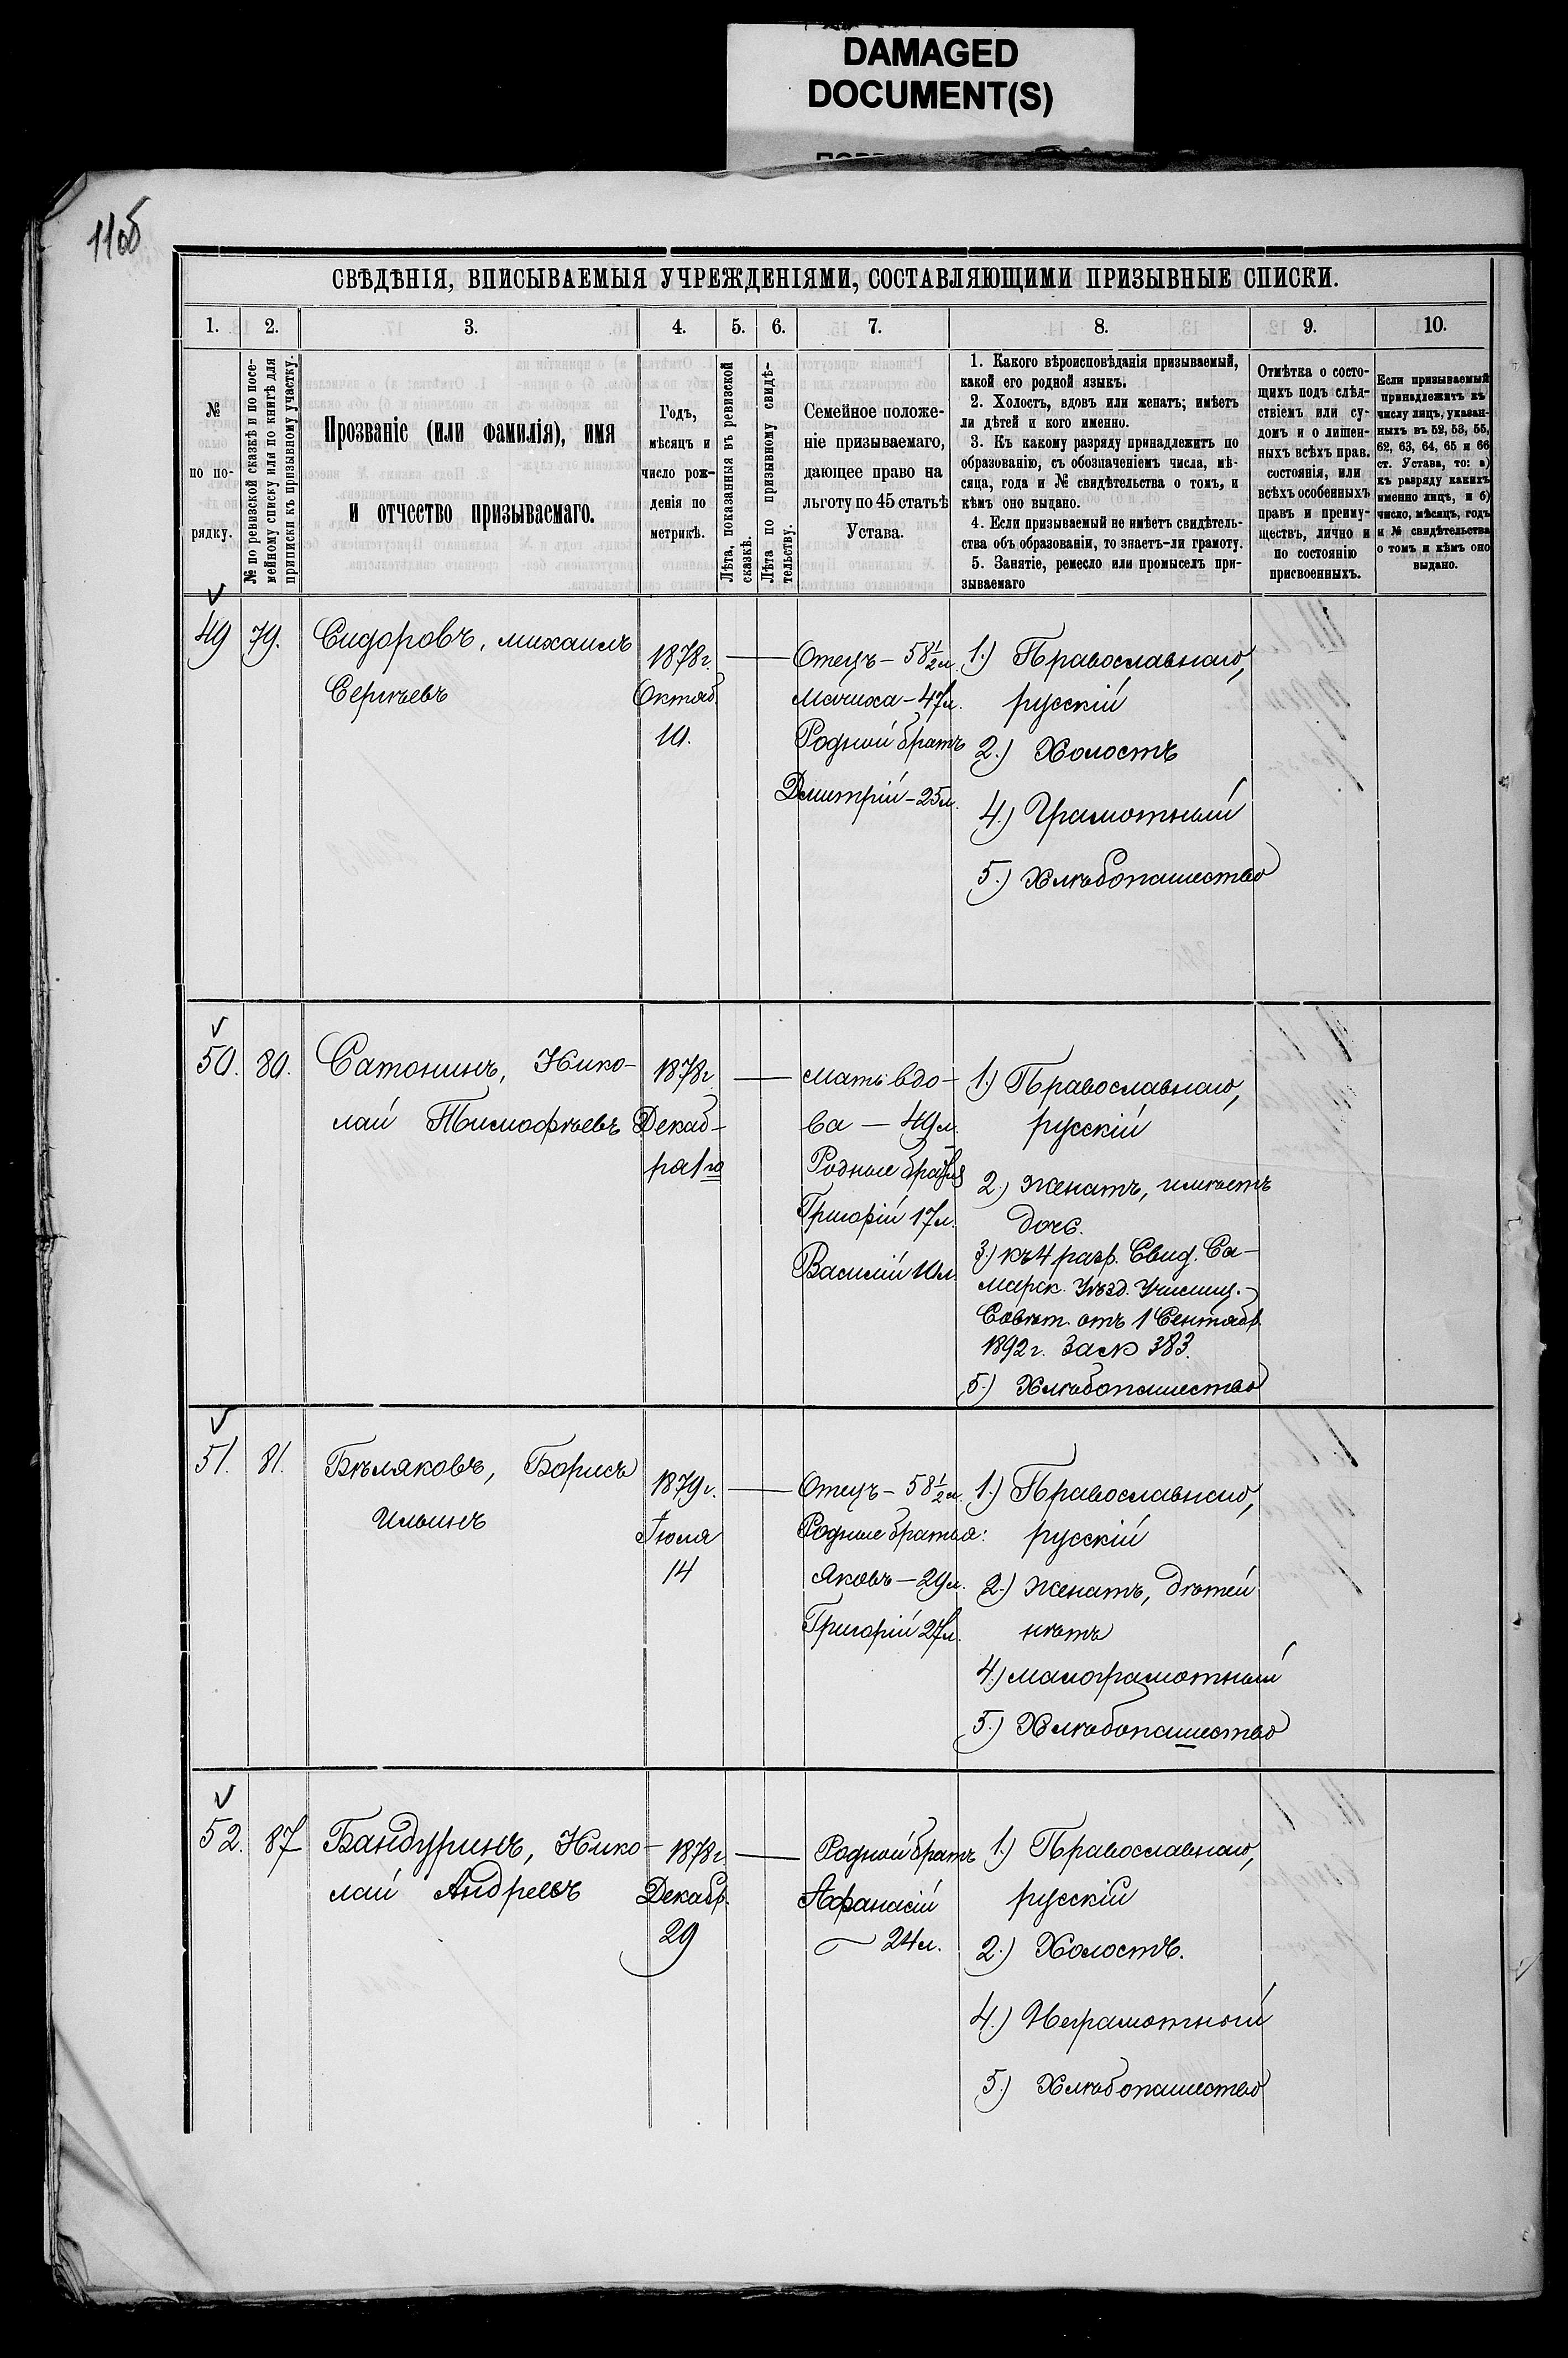 DAMAGED
DOCUMENT(S)
11об
СВѢДѢНІЯ, ВПИСЫВАЕМЫЯ УЧРЕЖДЕНІЯМИ, СОСТАВЛЯЮЩИМИ ПРИЗЫВНЫЕ СПИСКИ.
1. 2. 3. 4. 5. 6. 7. 8. 9. 10.
№
по по-
рядку.
№ по ревизской сказкѣ и по посе-
мейному списку или по книгѣ для
приписки къ призывному участку.
Прозваніе (или фамилія), имя
и отчество призываемаго.
Годъ,
мѣсяцъ и
число рож-
денія по
метрикѣ.
Лѣта, показанныя въ ревизской
сказкѣ.
Лѣта по призывному свидѣ-
тельству.
Семейное положе-
ніе призываемаго,
дающее право на
льготу по 45 статьѣ
Устава.
1. Какого вѣроисповѣданія призываемый,
какой его родной языкъ.
2. Холостъ, вдовъ или женатъ; имѣетъ
ли дѣтей и кого именно.
3. Къ какому разряду принадлежитъ по
образованію, съ обозначеніемъ числа, мѣ-
сяца, года и № свидѣтельства о томъ, и
кѣмъ оно выдано.
4. Если призываемый не имѣетъ свидѣтель-
ства объ образованіи, то знаетъ-ли грамоту.
5. Занятіе, ремесло или промыселъ при-
зываемаго
Отмѣтка о состо-
щихъ подъ слѣд-
ствіемъ или су-
домъ и о лишен-
ныхъ всѣхъ прав.
состоянія, или
всѣхъ особенныхъ
правъ и преиму-
ществъ, лично и
по состоянію
присвоенныхъ.
Если призываемый
принадлежитъ къ
числу лицъ, указан-
ныхъ въ 52, 53, 55,
62, 63, 64, 65 и 66
ст. Устава, то: а)
къ разряду какихъ
именно лицъ, и б)
число, мѣсяцъ, годъ
и № свидѣтельства
о томъ и кѣмъ оно
выдано.
49 79.
Сидоровъ, Михаилъ
Сергѣевъ
1878г.
Октяб.
10.
Отецъ – 58½л.
Мачиха – 47л.
Родной братъ
Дмитрій – 25л.
1.) Православнаго,
русскій
2.) Холостъ
4.) Грамотный
5.) Хлѣбопашество
50. 80.
Сатонинъ, Нико-
лай Тимофѣевъ
1878г.
Декаб-
ря 1го
мать вдо-
ва – 49л.
Родные братья
Григорій 17л.
Василій 10л.
1.) Православнаго,
русскій
2.) Женатъ, имѣетъ
дочь.
3.) къ 4 разр. Свид. Са-
марск. Уѣзд. Училищ.
Совѣт. отъ 1 Сентябр.
1892г. за № 383.
5.) Хлѣбопашество
51. 81.
Бѣляковъ, Борисъ
Ильинъ
1879г.
Іюля
14
Отецъ – 58½л.
Родные братья:
Яковъ – 29л.
Григорій 27л.
1.) Православнаго,
русскій
2.) Женатъ, дѣтей
нѣтъ
4.) Малограмотный
5.) Хлѣбопашество
52. 87
Бандуринъ, Нико-
лай Андреевъ
1878г.
Декабр.
29
Родной братъ
Афанасій
– 24л.
1.) Православнаго,
русскій
2.) Холостъ.
4.) Неграмотный
5.) Хлѣбопашество